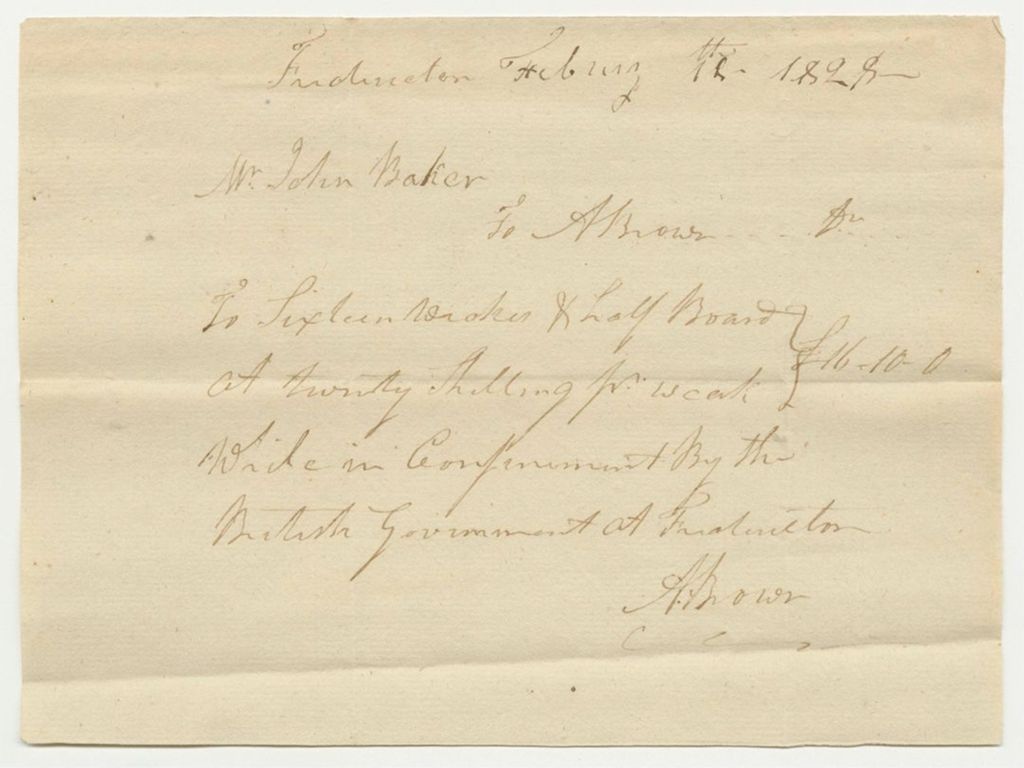 Fredricton Febury 18th 1828
Mr. John Baker
To A Brown Dr
To Sixteen Weakes & half Board
at twenty Shilling pr. weak } £16-10-0
Wile in Confinement By the
British Government at Fredricton
A. Brown